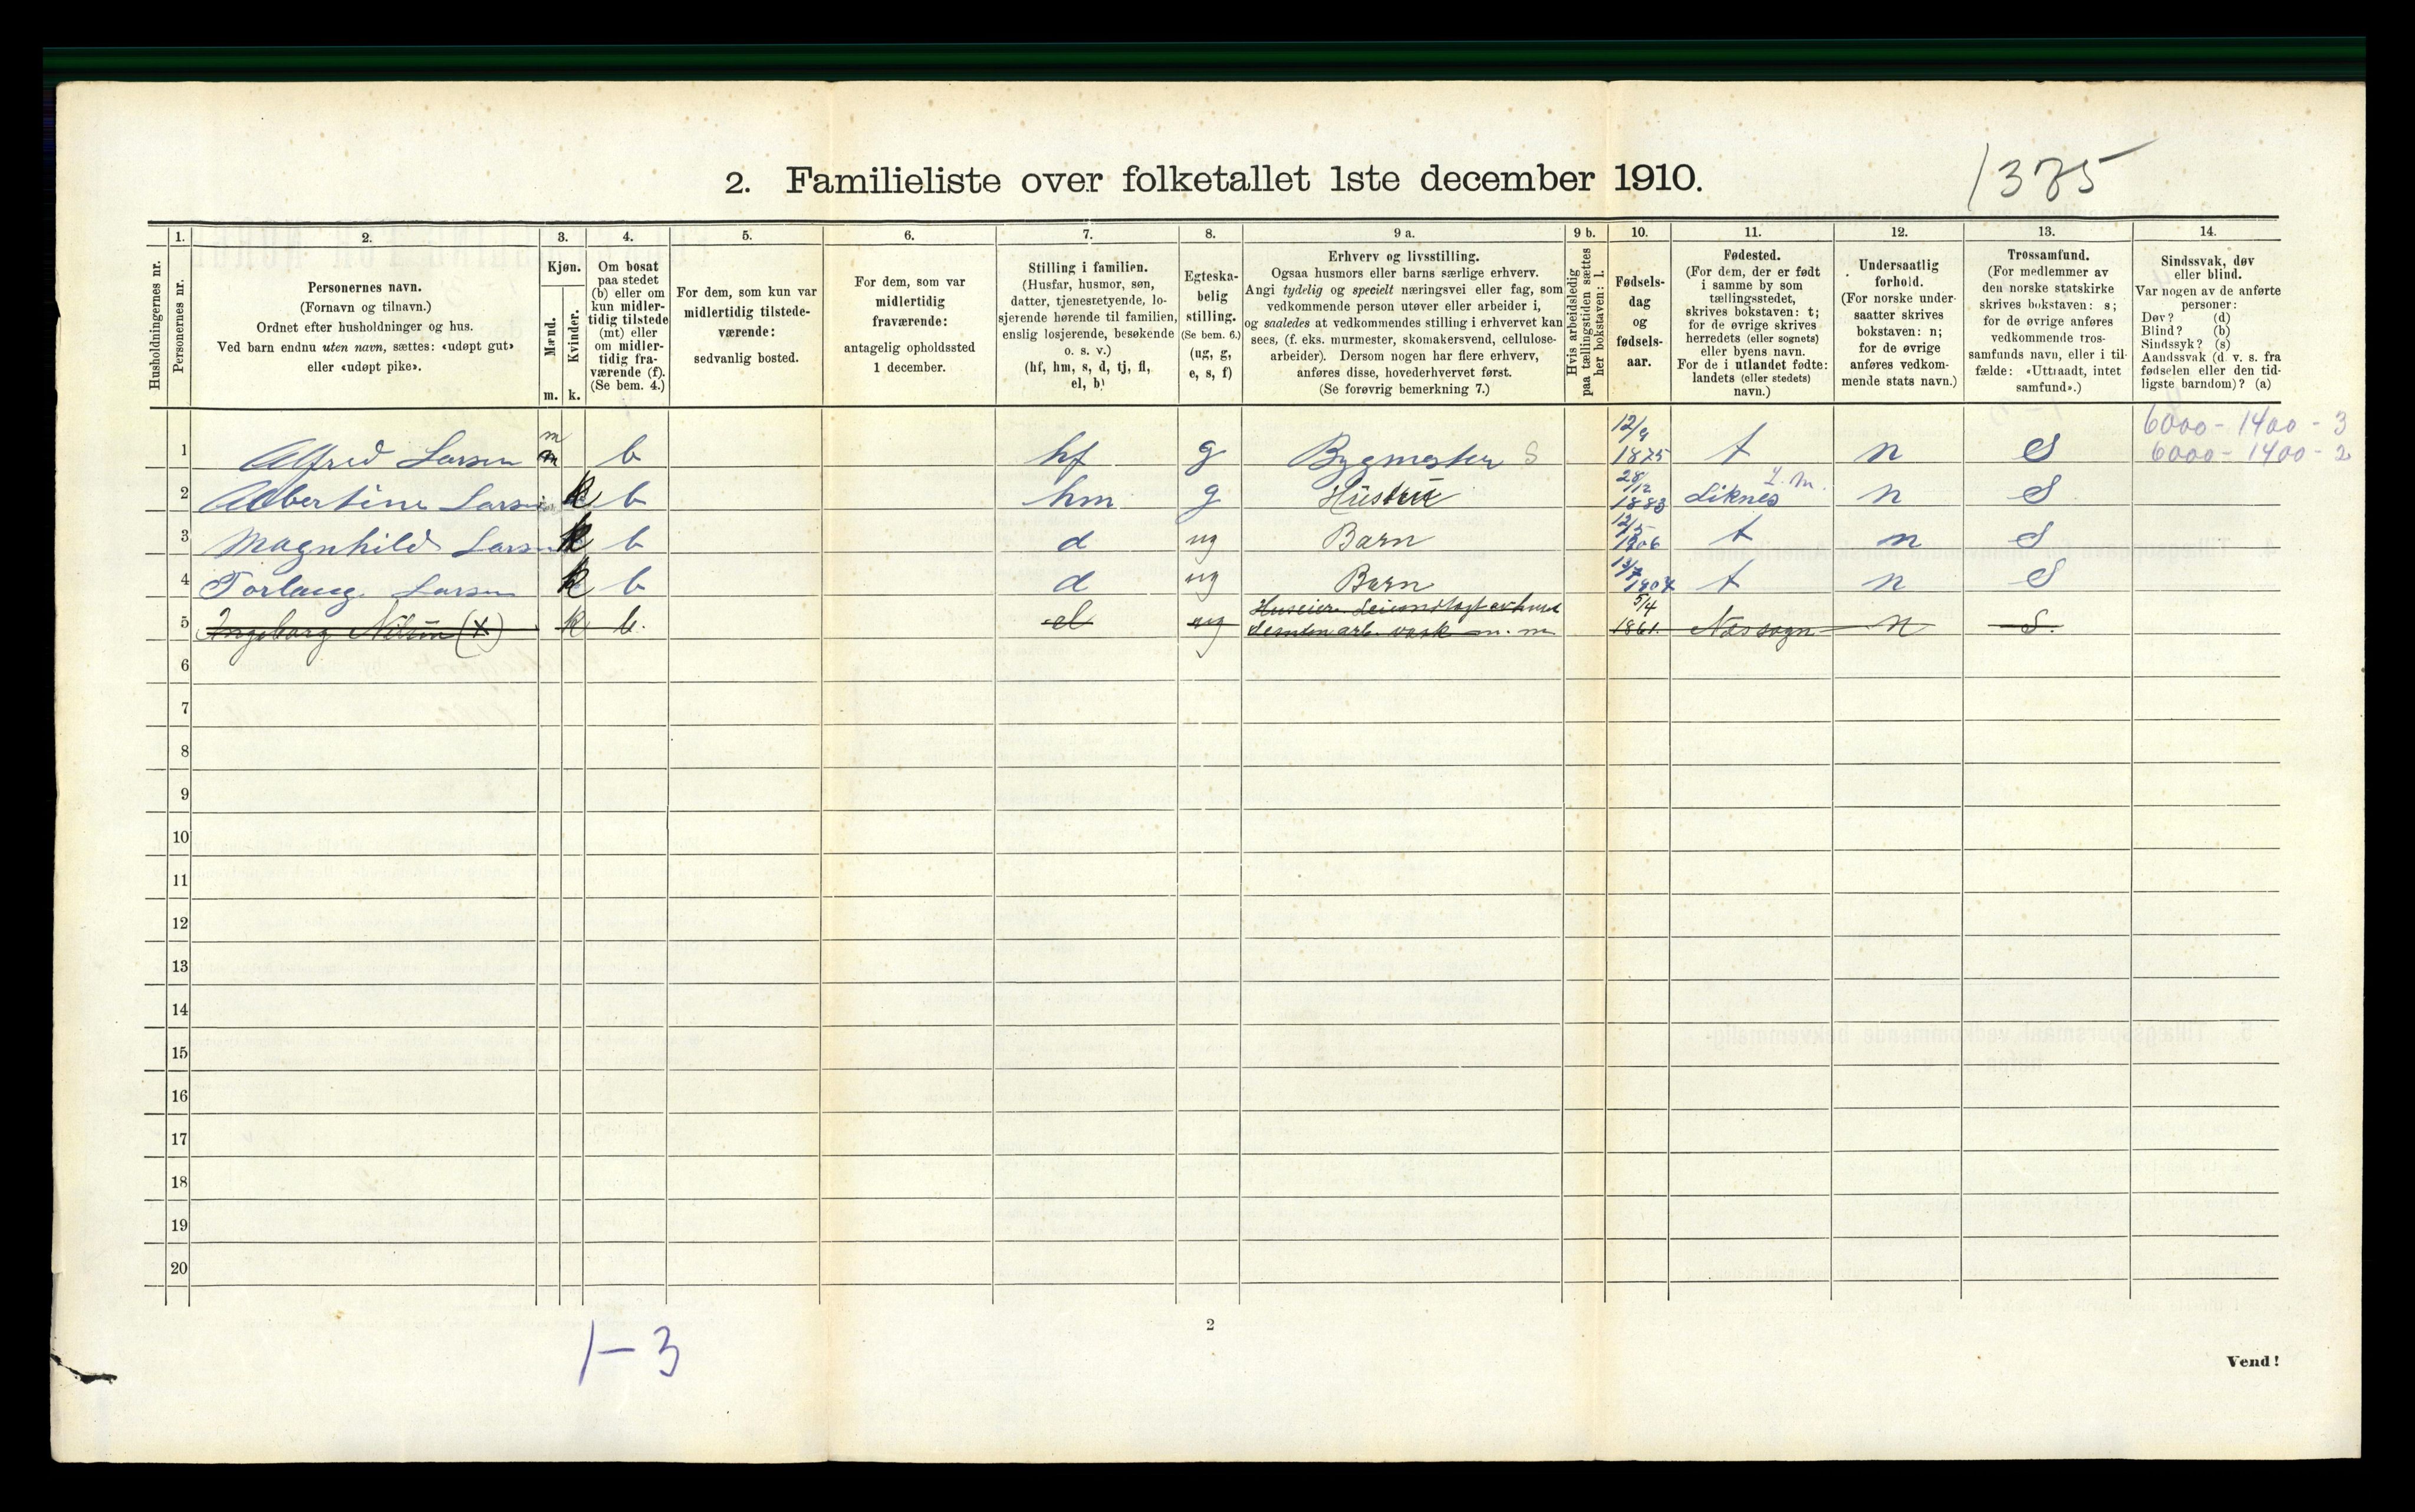 2. Familieliste over folketallet 1ste december 1910.
1375
Husholdningernes nr.
1.
Personernes nr.
2.
Personernes navn.
(Fornavn og tilnavn.)
Ordnet efter husholdninger og hus.
Ved barn endnu uten navn, sættes: «udøpt gut»
eller «udøpt pike».
3.
Kjøn.
Mænd.
Kvinder.
m. k.
4.
Om bosat
paa stedet
(b) eller om
kun midler-
tidig tilstede
(mt) eller
om midler-
tidig fra-
værende (f).
(Se bem. 4.)
5.
For dem, som kun var
midlertidig tilstede-
værende:
sedvanlig bosted.
6.
For dem, som var
midlertidig
fraværende:
antagelig opholdssted
1 december.
7.
Stilling i familien.
(Husfar, husmor, søn,
datter, tjenestetyende, lo-
sjerende hørende til familien,
enslig losjerende, besøkende
o. s. v.)
(hf, hm, s, d, tj, fl,
el, b)
8.
Egteska-
belig
stilling.
(Se bem. 6.)
(ug, g,
e, s, f)
9 a.
Erhverv og livsstilling.
Ogsaa husmors eller barns særlige erhverv.
Angi tydelig og specielt næringsvei eller fag, som
vedkommende person utøver eller arbeider i,
og saaledes at vedkommendes stilling i erhvervet kan
sees, (f. eks. murmester, skomakersvend, cellulose-
arbeider). Dersom nogen har flere erhverv,
anføres disse, hovederhvervet først.
(Se forøvrig bemerkning 7.)
9 b.
Hvis arbeidsledig
paa tællingstiden sættes
her bokstaven: l.
10.
Fødsels-
dag
og
fødsels-
aar.
11.
Fødested.
(For dem, der er født
i samme by som
tællingsstedet,
skrives bokstaven: t;
for de øvrige skrives
herredets (eller sognets)
eller byens navn.
For de i utlandet fødte:
landets (eller stedets)
navn.)
12.
Undersaatlig
forhold.
(For norske under-
saatter skrives
bokstaven: n;
for de øvrige
anføres vedkom-
mende stats navn.)
13.
Trossamfund.
(For medlemmer av
den norske statskirke
skrives bokstaven: s;
for de øvrige anføres
vedkommende tros-
samfunds navn, eller i til-
fælde: «Uttraadt, intet
samfund».)
14.
Sindssvak, døv
eller blind.
Var nogen av de anførte
personer:
Døv? (d)
Blind? (b)
Sindssyk? (s)
Aandssvak (d. v. s. fra
fødselen eller den tid-
ligste barndom)? (a)
6000 - 1400 - 3
6000 - 1400 - 2
1 Alfred Larsen m m b hf g Bygmester S 12/9 1875 t n S
2 Albertine Larsen k b hm g Hustru 28/12 1883 Liknes L. M. n S
3 Magnhild Larsen k b d ug Barn 12/5 1906 t n S
4 Torlaug Larsen k b d ug Barn 13/7 1907 t n S
5 Ingeborg Nilsen (X) k b. el ug Huseier. 5/4 1861. Nes sogn n S.
vask m. m
6
7
8
9
10
11
12
13
14
15
16
17
18
19
20
1-3
2
Vend!